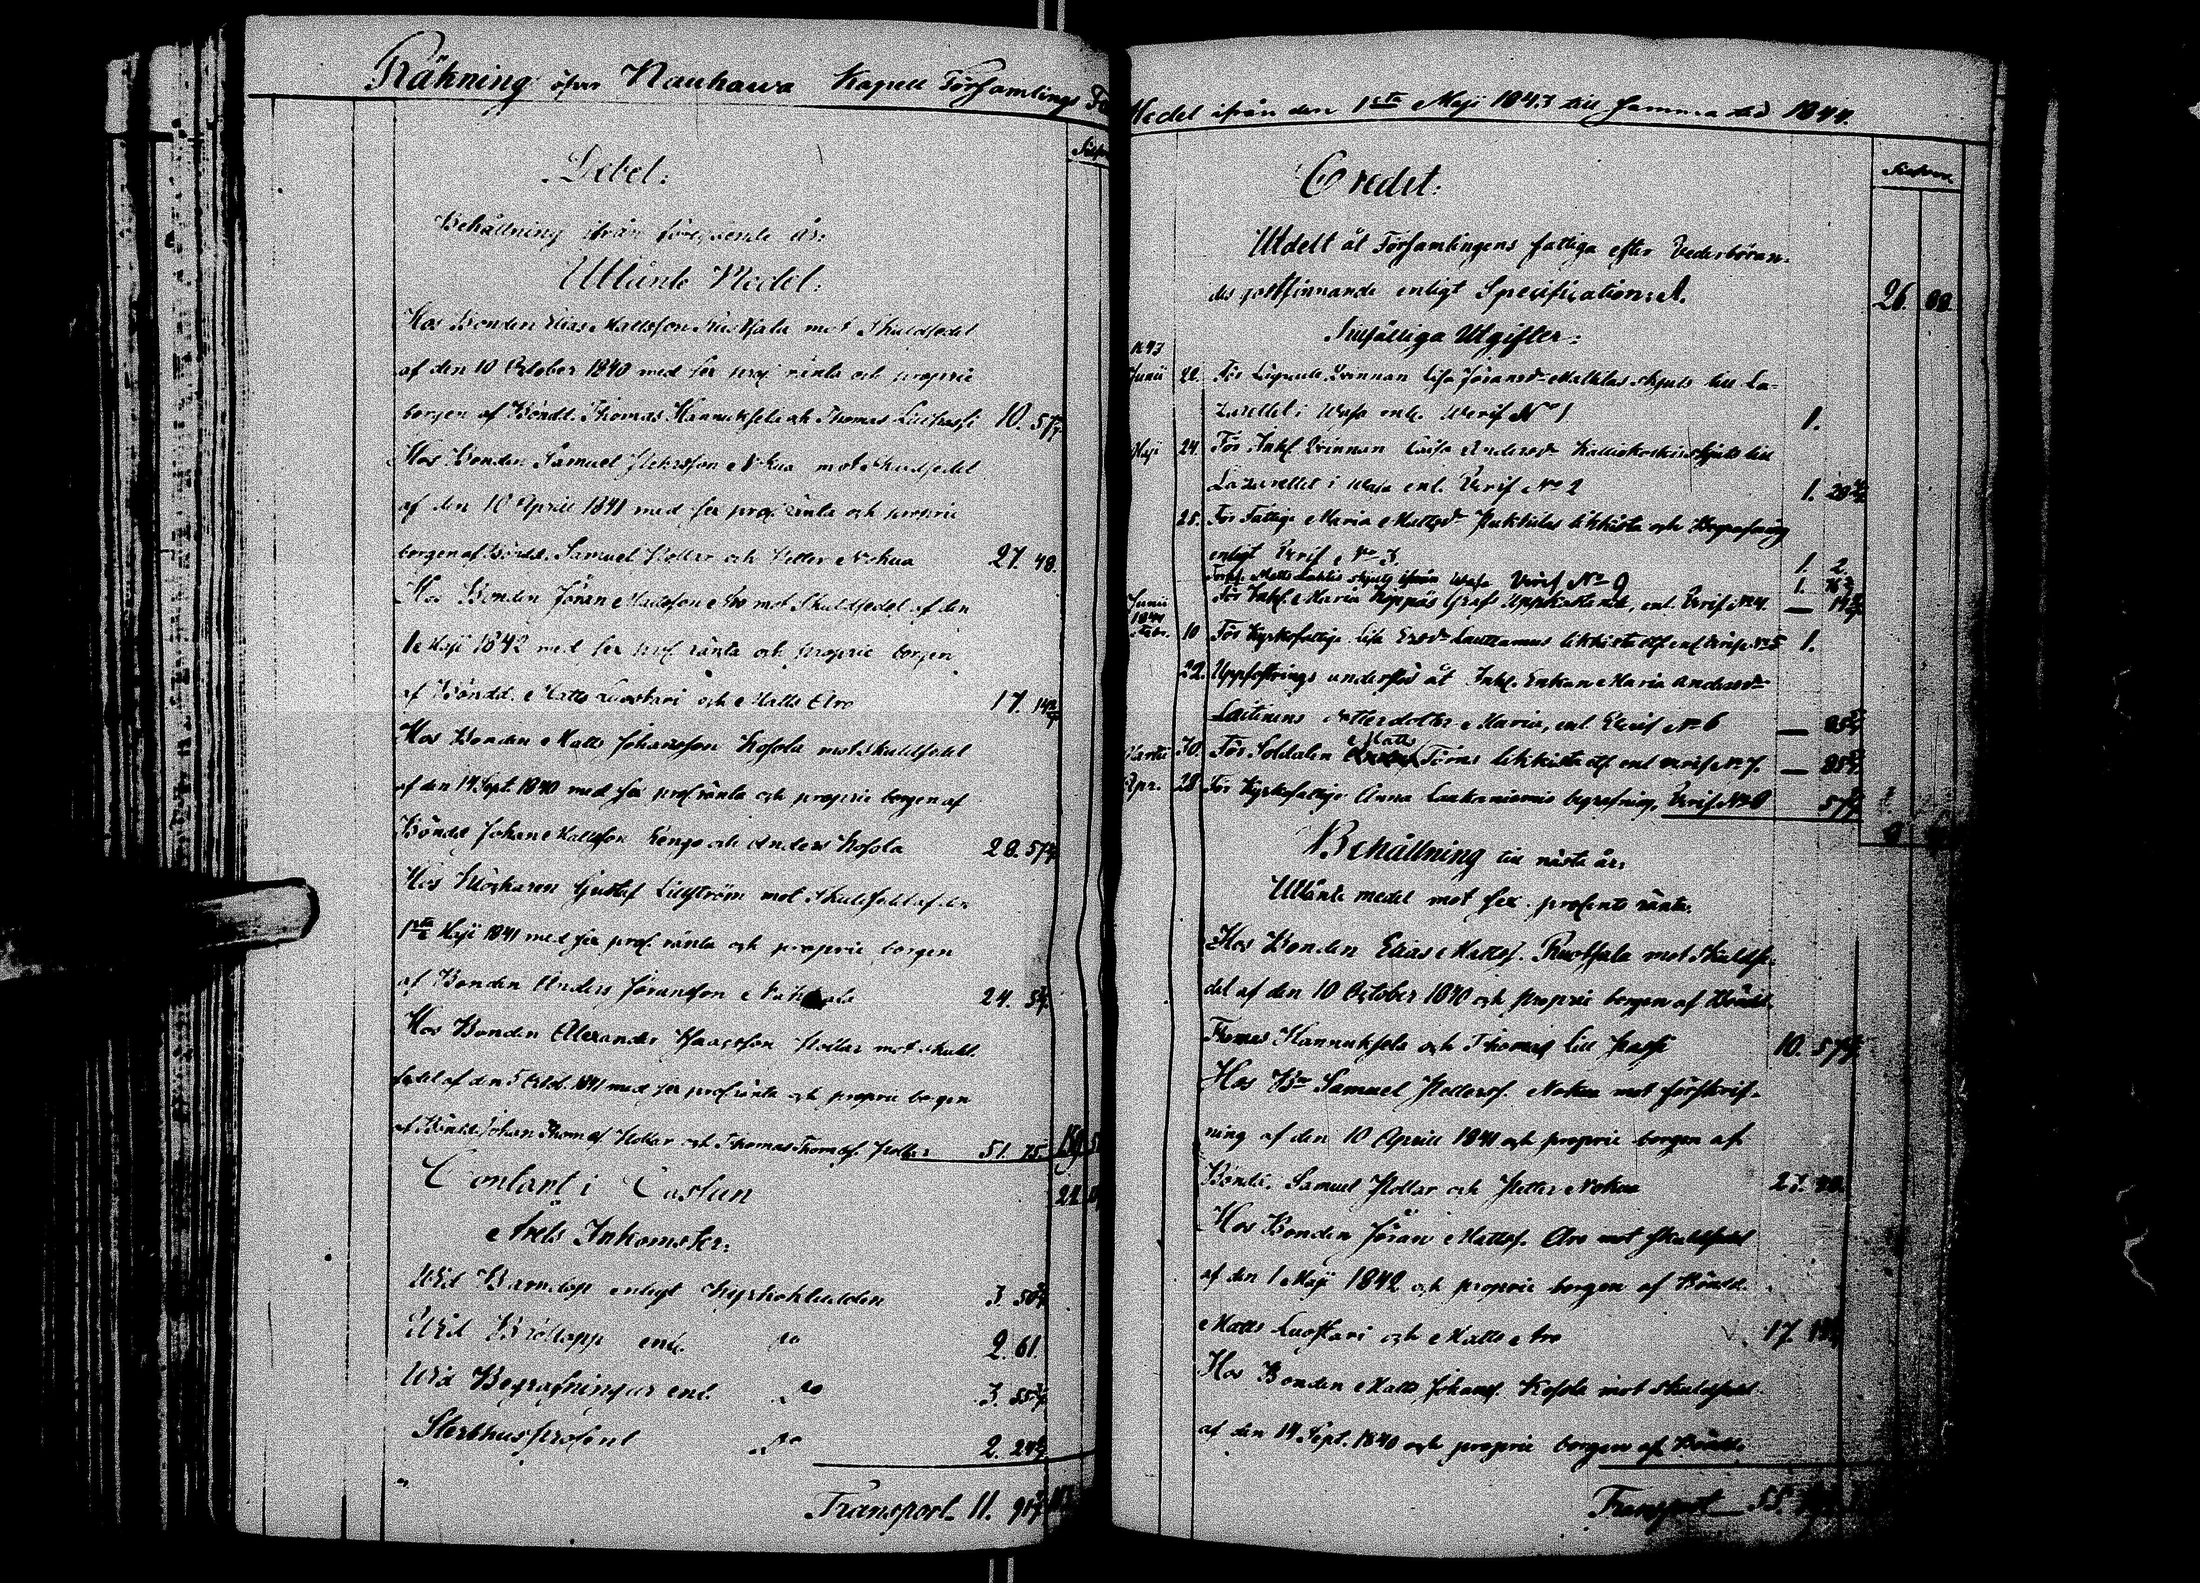 Räkning öfver Kauhawa Kapell Församlings
Debet:
Behållning ifrån föregående år:
Utlånte Medel:
Hos Bonden Elias Mattsson Ruotsala mot Skuldsedel
af den 10 October 1840 med sex proc ränta och proprie
borgen af Bönde. Thomas Hannuksela och Thomas Lill 10. 57
Hos Bonden Samuel Pettersson Nokua mot Skuldsedel
af den 10 Aprill 1841 med sex proc ränta och proprie
borgen af Bönde. Samuel Pollar och Petter Nokua 27. 48.
Hos Bonden Jöran Mattsson Aro mot Skuldsedel af den
1 Maji 1842 med sex proc ränta och proprie borgen
af Böndd. Matts Luostari och Matts Aro 17. 14
Hos Bonden Matts Johansson Kosola mot skuldsedel
af den 14 Sept. 1840 med sex proc ränta och proprie borgen af
Böndd Johan Mattsson och Anders Kosola 28. 57
Hos Gustaf Lillström mot Skuldsedel af den
1sta Maji 1841 med sex proc. ränta och proprie borgen
af Bonden Anders Jöransson 24.
Hos Bonden Alexander Isaacsson Pollar mot skuld
sedel af den 5 Octob. 1841 med sex proc ränta och proprie borgen
af Böndd. Johan Thomas. Pollar och Thomas Thomas. Pollar 51. 75.
Contant i Cassan 22.
Årets Inkomster:
Wid Barndop enligt Kyrkokladden 3. 50
Wid Bröllopp enl. do 2. 61.
Wid Begrafningar enl. do 3. 55
Sterbhusprocent do 2. 24
Transport 11. 91
Medel ifrån den 1sta Maji 1843 till samma tid 1844.
Credit:
Silfver
Utdelt åt Församlingens fattiga efter Vederböran-
des godtfinnande enligt Specification A. 26. 88.
Tillfälliga Utgifter:
1843
Junii 20. För Lisa Jöransd. Mattilas skjuts till La-
zarettet i Wasa enl. Werif No 1 1.
Maji 24. För Inh. Qvinnan Caisa Andersd. skjuts till
Lazarettet i Wasa enl. Verif No 2 1. 20
25. För Fattige Maria Mattsd. likkista och Begrafning
enligt Verif No 3. 1. 2.
Matts skjuts ifrån Wasa Verif No 9 1.
Junii För Inh. Maria Graf, enl. Verif. No 4. — 14
1844
10 För Kyrkofattige Lisa likkista enl verif No 5 1.
22. Uppfostrings understöd åt Inh. Enkan Maria Andersd.
Laitinens dotter Maria, enl Verif No 6 —
Martii 30. För Soldaten Matts Törns likkista enl verif No 7. — 85
Apr. 28 För Kyrkofattige Anna begrafning, Verif No 8 57
Behållning till nästa år:
Utlånte medel mot sex procents ränta.
Hos Bonden Elias Matts. Ruotsala mot Skuldse-
del af den 10 October 1840 och proprie borgen af Böndd.
Thomas Hannuksela och Thomas Lill 10. 57
Hos Bn Samuel Petterss. Nokua mot förskrif-
ning af den 10 Aprill 1841 och proprie borgen af
Böndd. Samuel Pollar och Petter Nokua 27. 48.
Hos Bonden Jöran Matts. Aro mot skuldsedel
af den 1 Maji 1842 och proprie borgen af Böndd.
Matts Luostari och Matts Aro 17. 14
Hos Bonden Matts Johans. Kosola mot skuldsedel
af den 14 Sept. 1840 och proprie borgen af Böndd.
Transport 55.